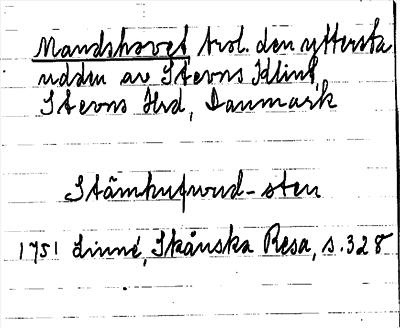 Mandshoved, trol. den yttersta
udden av Stevns Klint,
Stevns Hrd, Danmark
Stämhufwud-sten
1751 Linné, Skånska Resa, s. 328